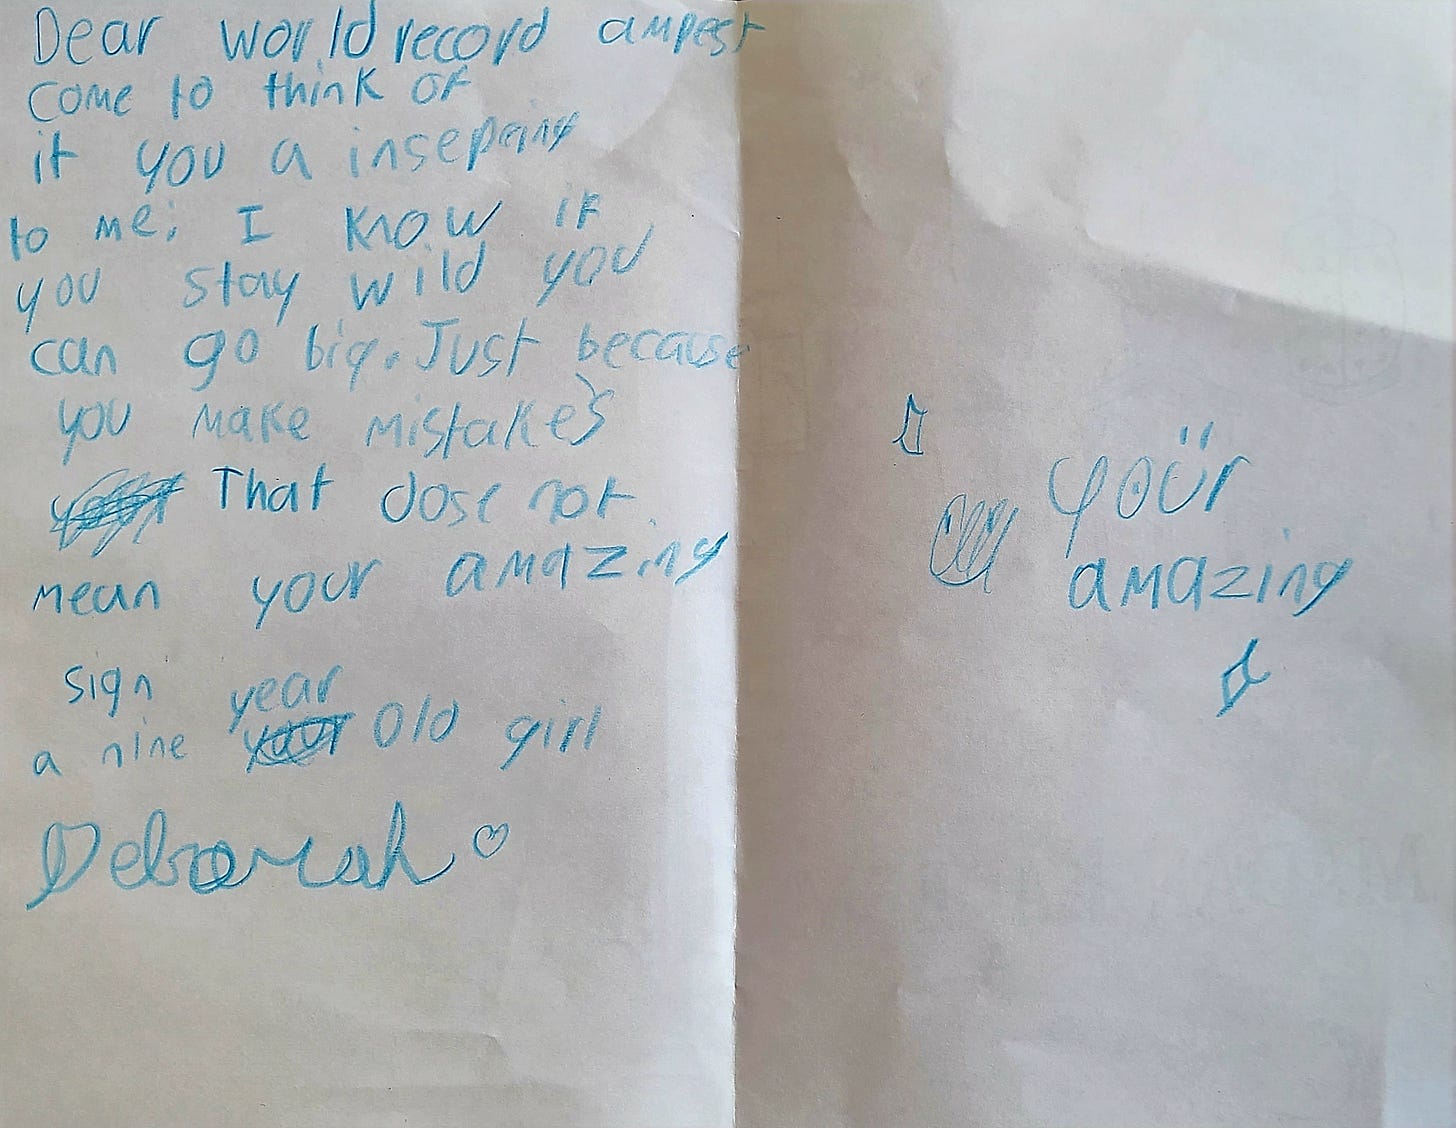 Dear world record ampest
come to think of
it you a insepeing
to me; I know if
you stay wild you
can go big. Just because
you make mistakes
That dose not
mean your amazing
sign year
a nine old girl
Deborah
your
amazing